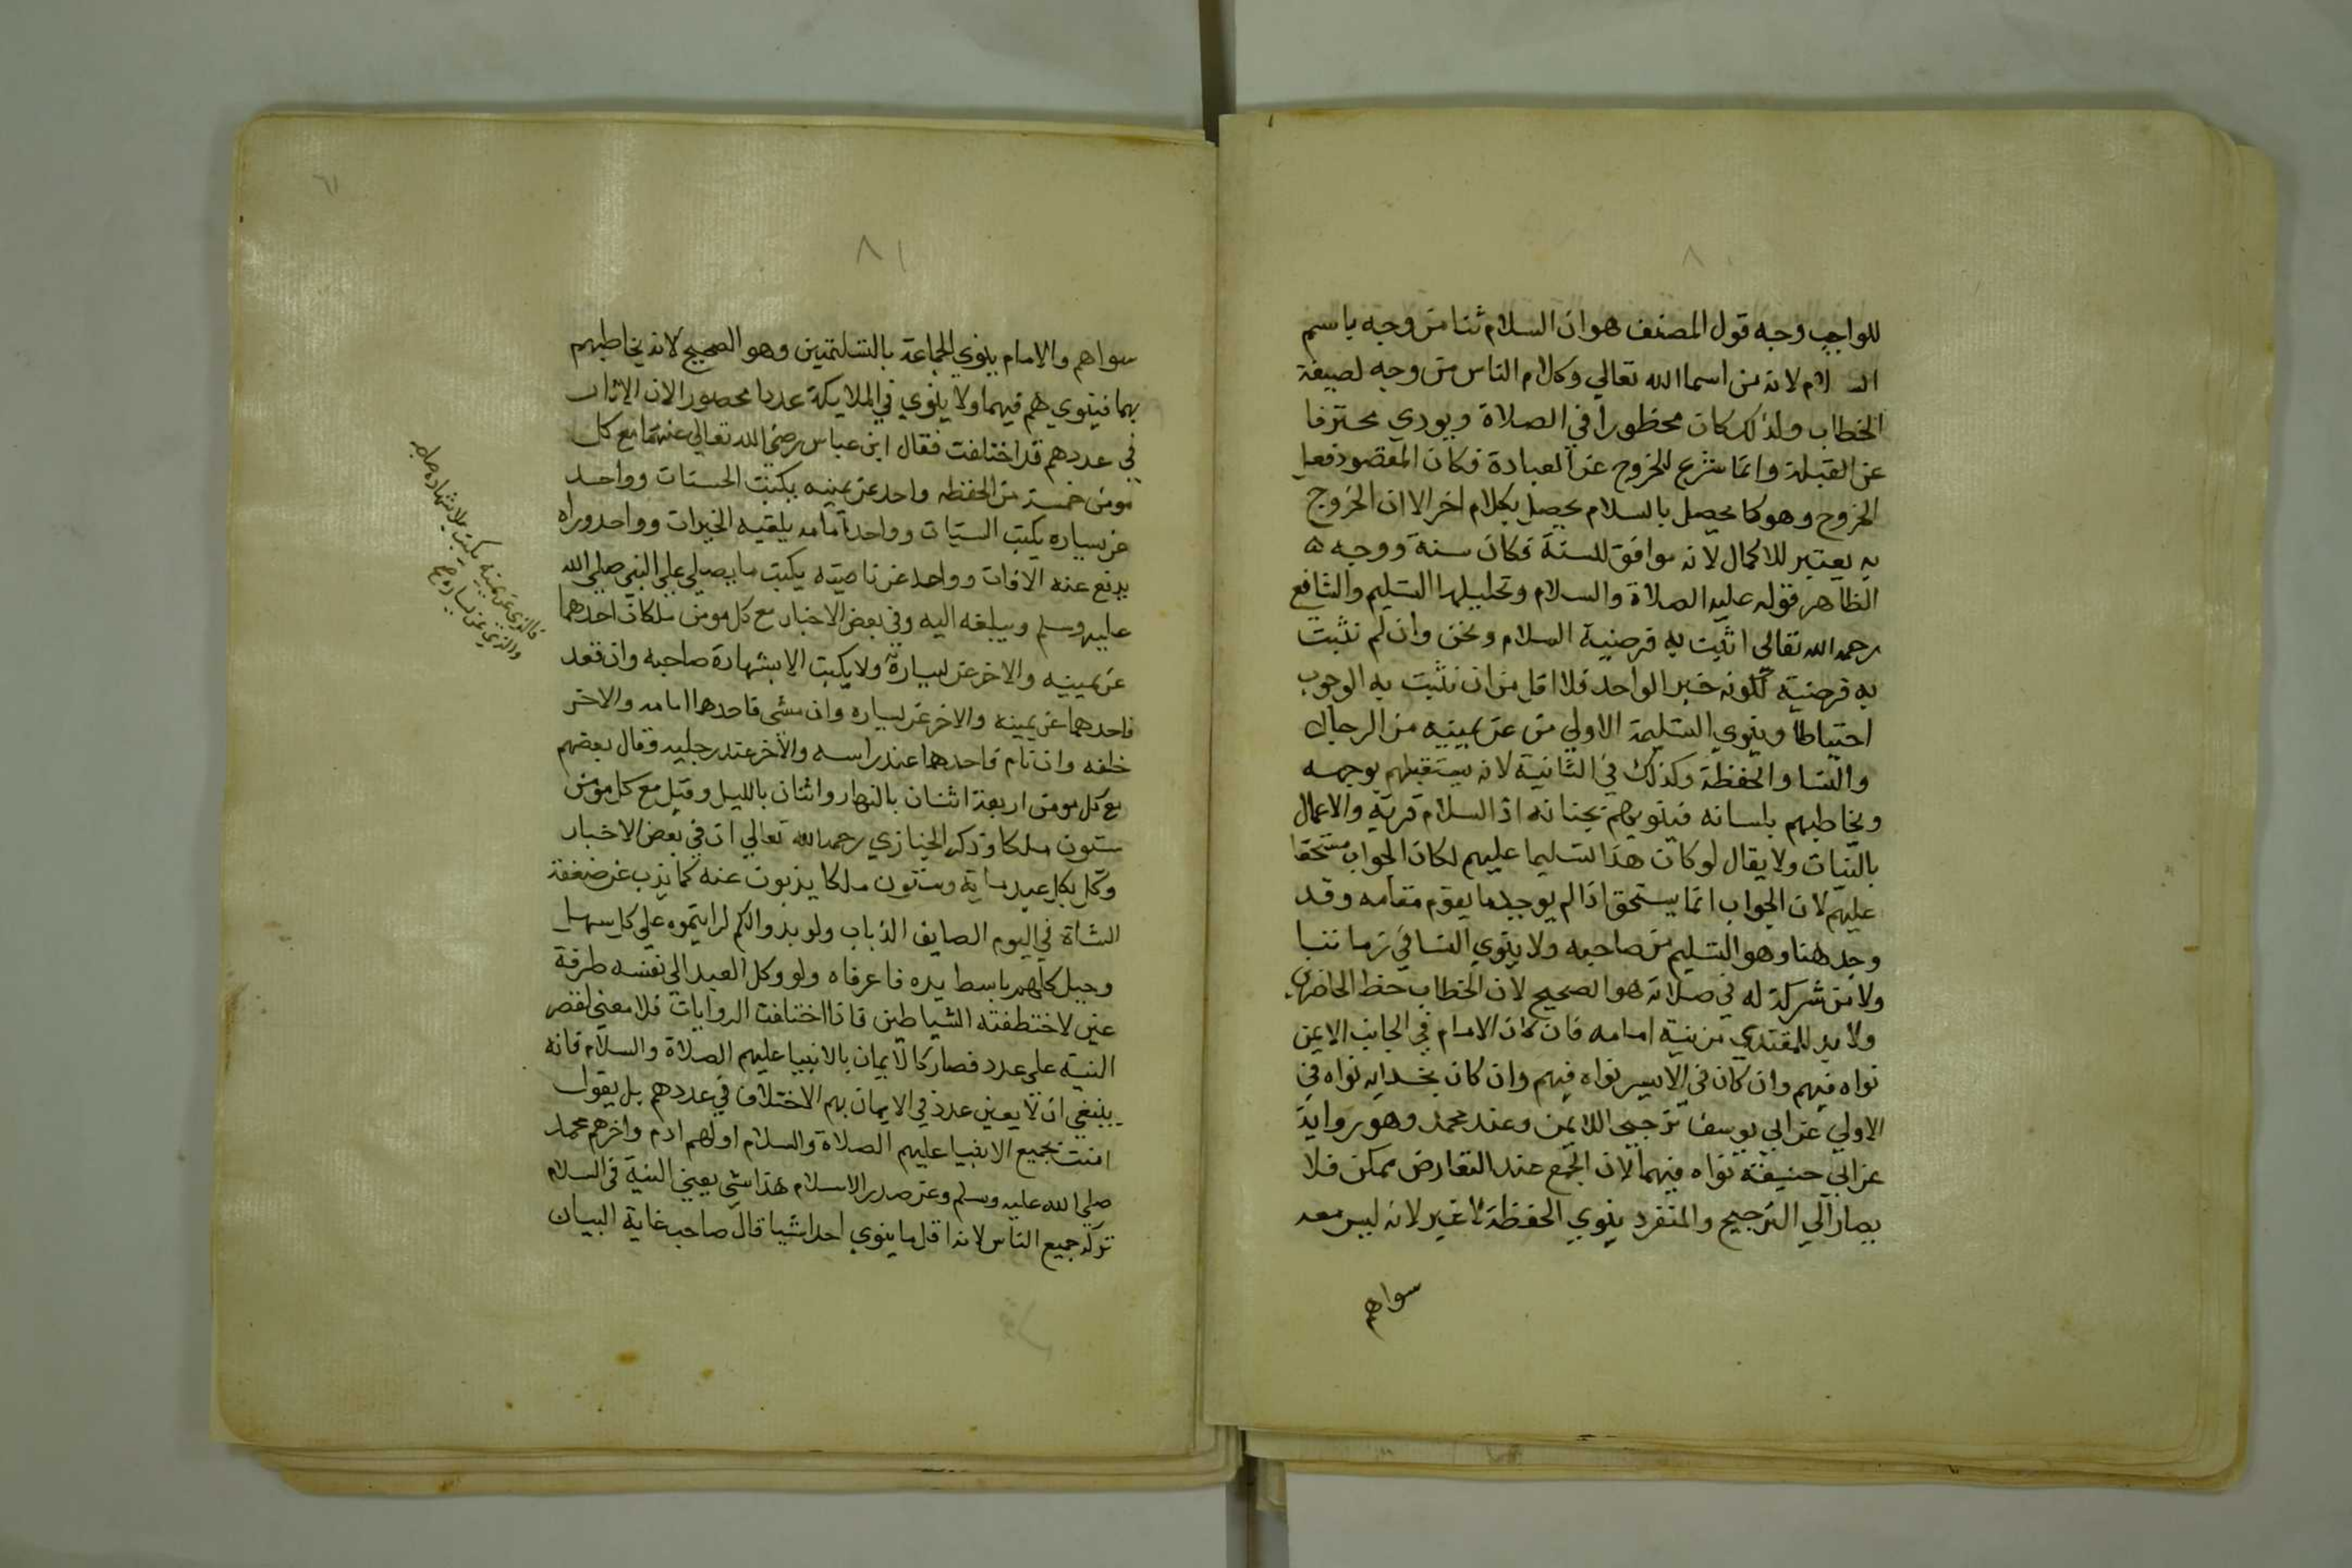 ٨٠
للواجب وجه قول المصنف هو ان السلام ثنا من وجه باسم
السلام لانه من اسما الله تعالي وكلام الناس من وجه لصيغة
الخطاب ولذلك كان محظورا في الصلاة ويودي محترفا
عن القبلة وانما شرع للخروج عن العبادة فكان المقصود فعل
الخروج وهو كما يحصل بالسلام يحصل بكلام اخر الا ان الخروج
به يعتبر للاكمال لانه موافق للسنة فكان سنة ووجه ه
الظاهر قوله عليه الصلاة والسلام وتحليلها التسليم والشافع
رحمه الله تعالي اثبت به فرضية السلام ونحن وان لم نثبت
به فرضيته لكونه خبر الواحد فلا اقل من ان نثبت به الوجوب
احتياطا وينوي التسليمة الاولي من عن يمينه من الرجال
والنسا والحفظة وكذلك في الثانية لانه يستقبلهم بوجهه
ويخاطبهم بلسانه فينويهم بجنانه اذ السلام قربة والاعمال
بالنيات ولا يقال لو كان هذا تسليما عليهم لكان الجواب مستحقا
عليهم لان الجواب انما يستحق اذا لم يوجد ما يقوم مقامه وقد
وجد هنا وهو التسليم من صاحبه ولا ينوي النسا في زماننا
ولا من شركة له في صلاته هو الصحيح لان الخطاب حظ الحاضرين
ولا بد للمقتدي من نية امامه فان كان الامام في الجانب الايمن
نواه فيهم وان كان في الايسر نواه فيهم وان كان بحذايه نواه في
الاولي عن ابي يوسف ترجيحا للايمن وعند محمد وهو رواية
عن ابي حنيفة نواه فيهما لان الجمع عند التعارض ممكن فلا
يصار الي الترجيح والمنفرد ينوي الحفظة لا غير لانه ليس معه
سواهم
٦١
٨١
سواهم والامام ينوي الجماعة بالتسليمتين وهو الصحيح لانه يخاطبهم
بهما فينويهم فيهما ولا ينوي في الملايكة عددا محصورا لان الاثار
في عددهم قد اختلفت فقال ابن عباس رضي الله تعالي عنهما مع كل
مومن خمسة من الحفظه واحد عن يمينه يكتب الحسنات وواحد
عن يساره يكتب السيات وواحد امامه يلقيه الخيرات وواحد وراه
يدفع عنه الافات وواحد عن ناصيته يكتب ما يصلي علي النبي صلي الله
عليه وسلم ويبلغه اليه وفي بعض الاخبار مع كل مومن ملكان احدهما
عن يمينه والاخر عن يساره ولا يكتب الا بشهادة صاحبه وان قعد
فاحدهما عن يمينه والاخر عن يساره وان مشي فاحدهما امامه والاخر
خلفه وان نام فاحدهما عند راسه والاخر عند رجليه وقال بعضهم
مع كل مومن اربعة اثنان بالنهار واثنان بالليل وقيل مع كل مومن
ستون ملكا وذكر الخبازي رحمه الله تعالي ان في بعض الاخبار
وكل بكل عبد ماية وستون ملكا يذبون عنه كما يذب عن ضعفة
الشاة في اليوم الصايف الذباب ولو بدوا لكم لرايتموه علي كل سهل
وجبل كلهم باسط يده فاغرفاه ولو وكل العبد الي نفسه طرفة
عين لاختطفته الشياطين فاذا اختلفت الروايات فلا معني لقصر
النية علي عدد فصار كالايمان بالانبيا عليهم الصلاة والسلام فانه
ينبغي ان لا يعين عدد في الايمان بهم الاختلاف في عددهم بل يقول
امنت بجميع الانبيا عليهم الصلاة والسلام اولهم ادم واخرهم محمد
صلي الله عليه وسلم وعن صدر الاسلام هذا شي يعني النية في السلام
تركه جميع الناس لانه اقل ما ينوي احد شيا قال صاحب غاية البيان
فالذي عن يمينه يكتب بلا شهادة صاحبه
والذي عن يساره